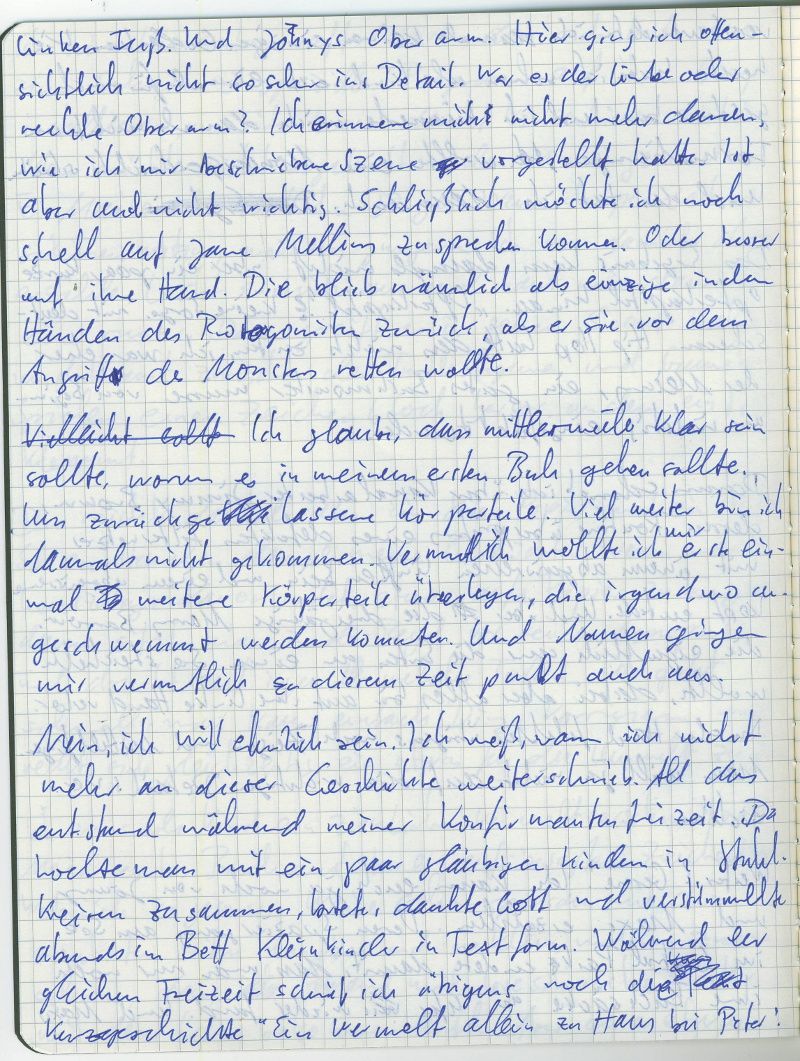 linken Fuß. Und Johnys Oberarm. Hier ging ich offen-
sichtlich nicht so sehr ins Detail. War es der linke oder
rechte Oberarm? Ich erinnere mich nicht mehr daran,
wie ich mir beschriebene Szene vorgestellt hatte. Ist
aber auch nicht wichtig. Schließlich möchte ich noch
schell auf Jane Mellins zu sprechen kommen. Oder besser
auf ihre Hand. Die blieb nämlich als einzige in den
Händen des Protagonisten zurück, als er sie vor dem
Angriff des Monsters retten wollte.
Vielleicht sollt Ich glaube, dass mittlerweile klar sein
sollte, worum es in meinem ersten Buch gehen sollte.
Um zurückgelassene Körperteile. Viel weiter bin ich
damals nicht gekommen. Vermutlich wollte ich mir erst ein-
mal weitere Körperteile überlegen, die irgendwo an-
geschwemmt werden konnten. Und Namen gingen
mir vermutlich zu diesem Zeitpunkt auch aus.
Nein, ich will ehrlich sein. Ich weiß, warum ich nicht
mehr an dieser Geschichte weiterschrieb. All das
entstand während meiner Konfirmantenfreizeit. Da
hockte man mit ein paar gläubigen Kindern in Stuhl-
kreisen zusammen, betete, dankte Gott und verstümmelte
abends im Bett Kleinkinder in Textform. Während der
gleichen Freizeit schrieb ich übrigens noch die
Kurzgeschichte "Ein vermelt allein zu Haus bei Peter".